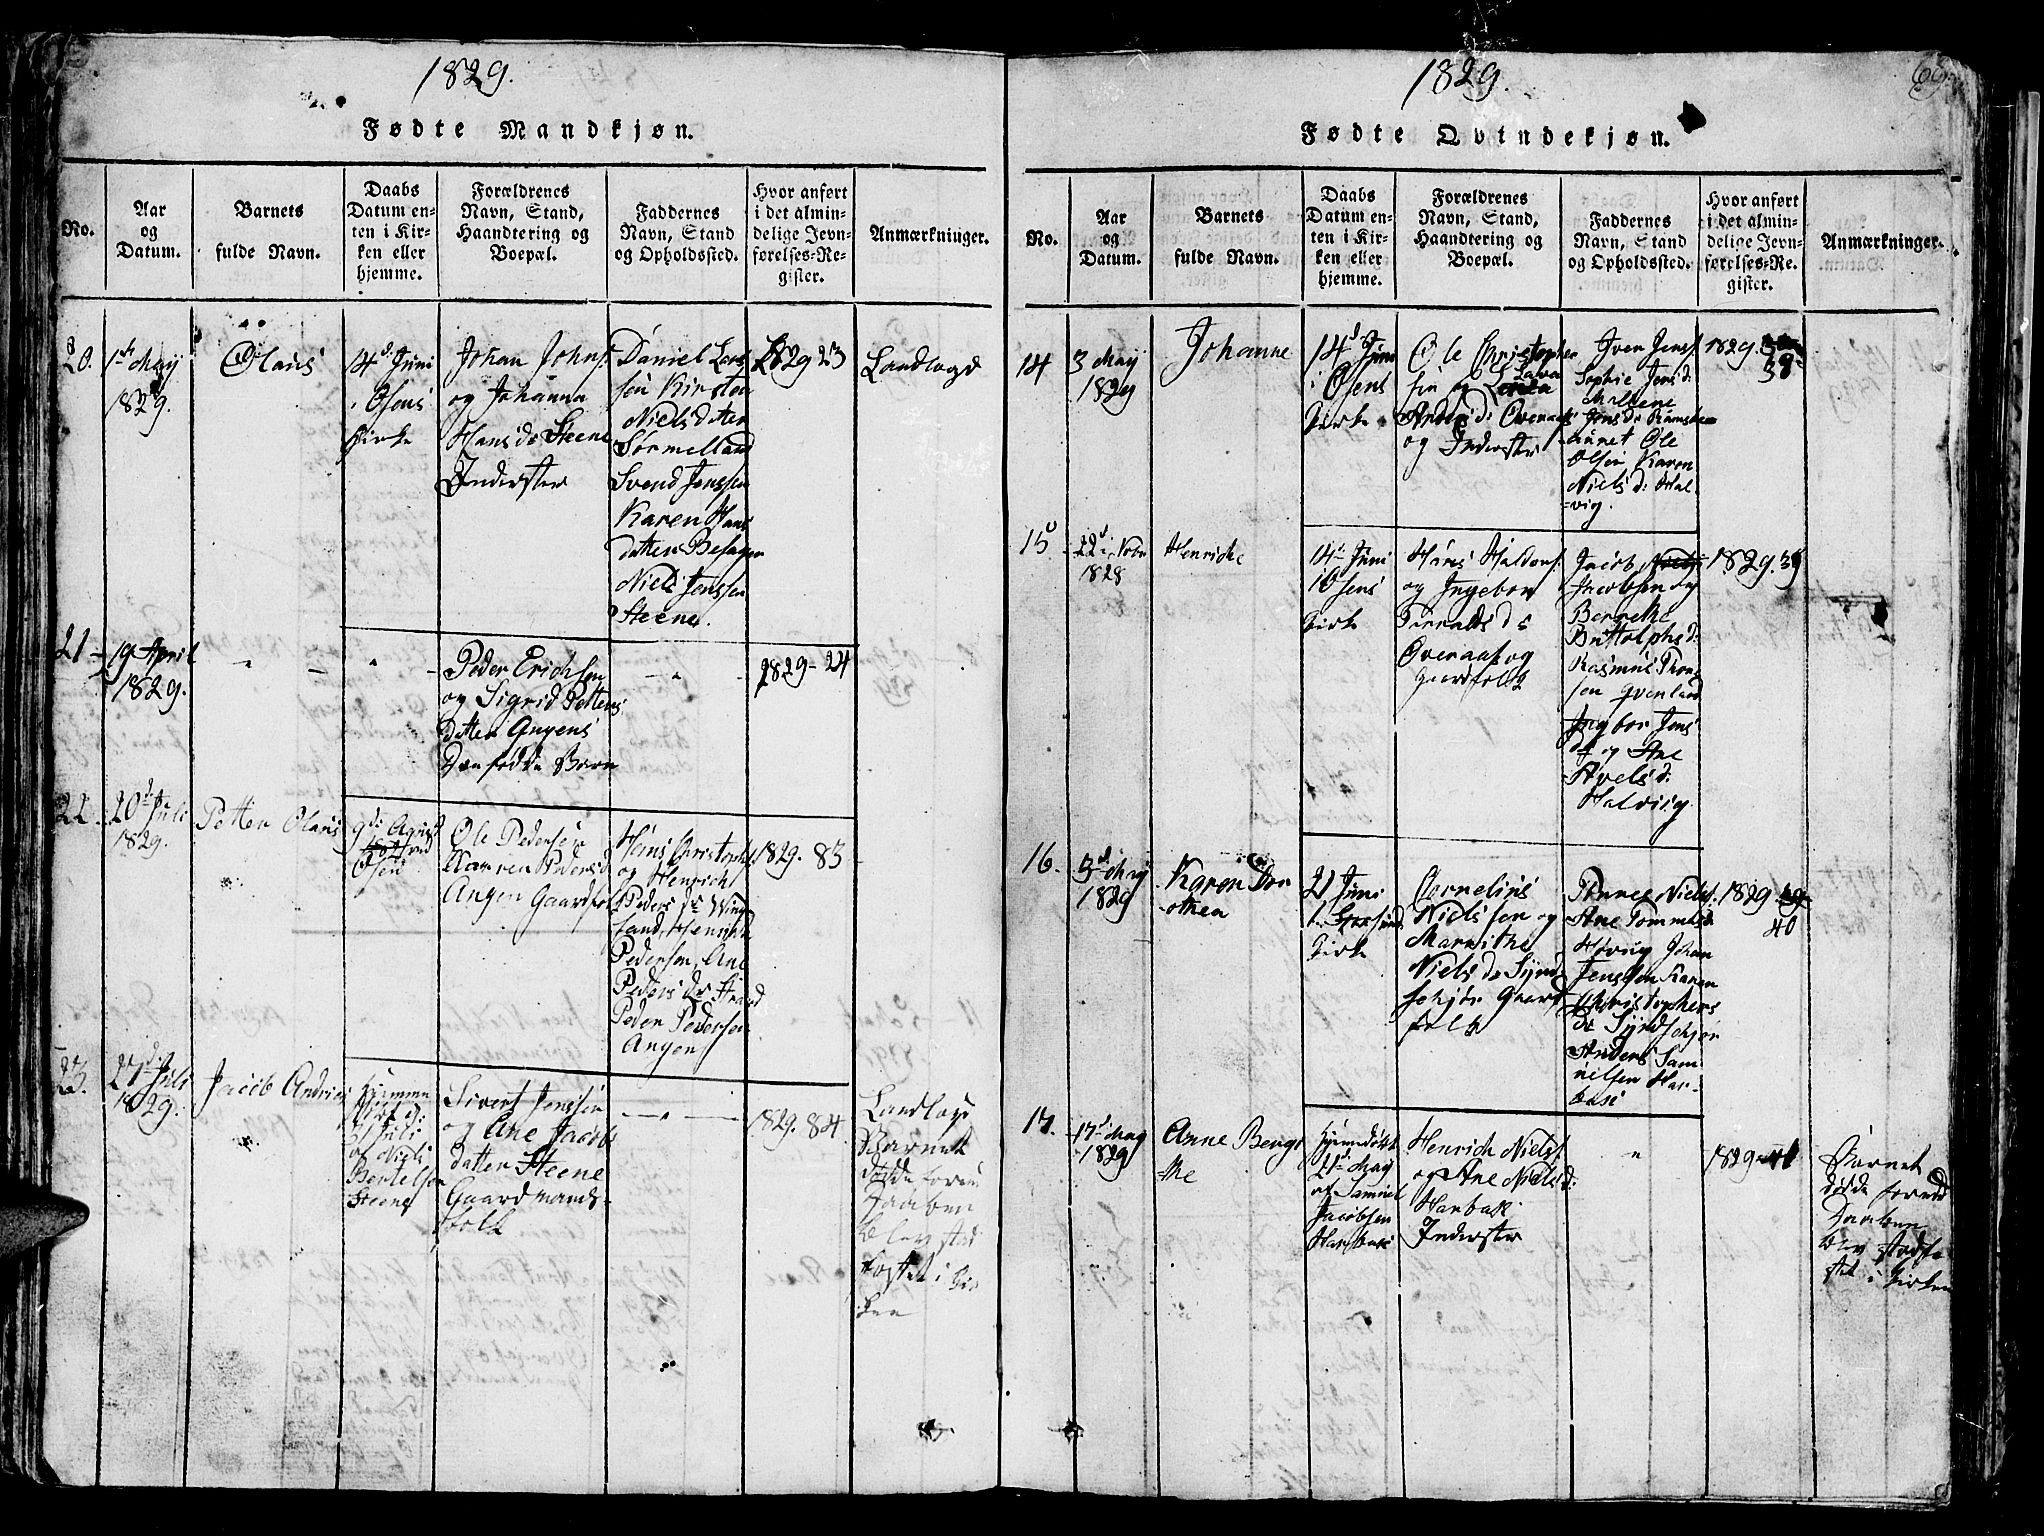 1829.
Fødte Mandkjøn.
No.
Aar
og
Datum.
Barnets
fulde Navn.
Daabs
Datum en-
ten i Kir-
ken eller
hjemme.
Forældrenes
Navn, Stand,
Haandtering og
Boepæl.
Faddernes
Navn, Stand
og Opholdssted.
Hvor anført
i det almin-
delige Jevn-
førelses-Re-
gister.
Anmærkninger.
20.
1st May
1829.
Olaus
14 d: Juni
i Osens
Kirke
Johan Johns:
og Johanna
Hans ds Steene
Inderster
Daniel Lars
sen Kirsten
Niels datter
Sørmelland
Svend Jenssen
Karen Hans
datter Besager
Niels Jenssen
Steene.
1829 23
Landlagd
21
19 April
1829.
Peder Erichsen
og Sigrid Petters
datter Angens
Dødfødde Barn
1829 - 24
22.
20d Juli
1829.
Petter Olaus
9 d: August
Osen
Ole Pedersen
Karen Peders d
Angen Gaardfolk
Hans Christophs
og Henrich
Peders ds Wing
sand, Henrich
Pedersen, Ane
Peders ds Strand
Peder Pedersen
Angen
1829. 83
23.
27d Juli
1829.
Jacob Andreas
hjemme
døbt d:
31 Juli
af Niels
Bertelsen
Steene
Sivert Jenssen
og Ane Jacobs
datter Steene
Gaardmands-
folk
1829. 84
Landlagd
Barnet
døde forend
Daaben
blev stad
fæstet i Kir
ken
1829.
69.
Fødte Qvindekjøn.
No.
Aar
og
Datum.
Barnets
fulde Navn.
Daabs
Datum en-
ten i Kir-
ken eller
hjemme.
Forældrenes
Navn, Stand,
Haandtering og
Boepæl.
Faddernes
Navn, Stand
og Opholdssted.
Hvor anført
i det almin-
delige Jevn-
førelses-Re-
gister.
Anmærkninger.
14
3 May
1829
Johanne
14 d Juni
i Osens
Kirke
Ole Christopher
sen og Lava
Anders d: Overaae
og Inderster
Iver Jens:
Sophie Jens d:
Malene
Jens ds Ramsøe
auret Ole
Olsen Karen
Niels d: Hal-
vig.
1829.
38
15
22d Nobr
1828
Henriche
14 Juni
i Osens
Kirke
Hans Haldors:
og Ingebor
Tørrals ds
Overaae og
Gaardfolk
Jacob
Jacobsen og
Berethe
Britholphs d:
Rasmus Thoms
sen Qvenland
Ingbor Jens
ds og Ane
Axels d:
Halvig.
1829. 39
16.
3d May
1829
Karen Dor
othea
21 Juni
Kirke
Cornelius
Nielssen og
Marrithe
Niels ds Synd
schjør Gaard
folk
Tønnes Niels:
Ane Tommes d
Høvig Johan
Jenssen Karen
Christophers
ds Syndschjør
Anders Sam
uelsen Har
bak
1829
40
17.
17d May
1829
Anne Bengt
the
hjemmedøbt
21 d May
af Samuel
Jacobsen
Harbak
Henrich Niels:
og Ane Niels d:
Harbak
Inderster
1829 - 41
Barnet
døde forend
Daaben
blev stadfæ
stet i Kirken